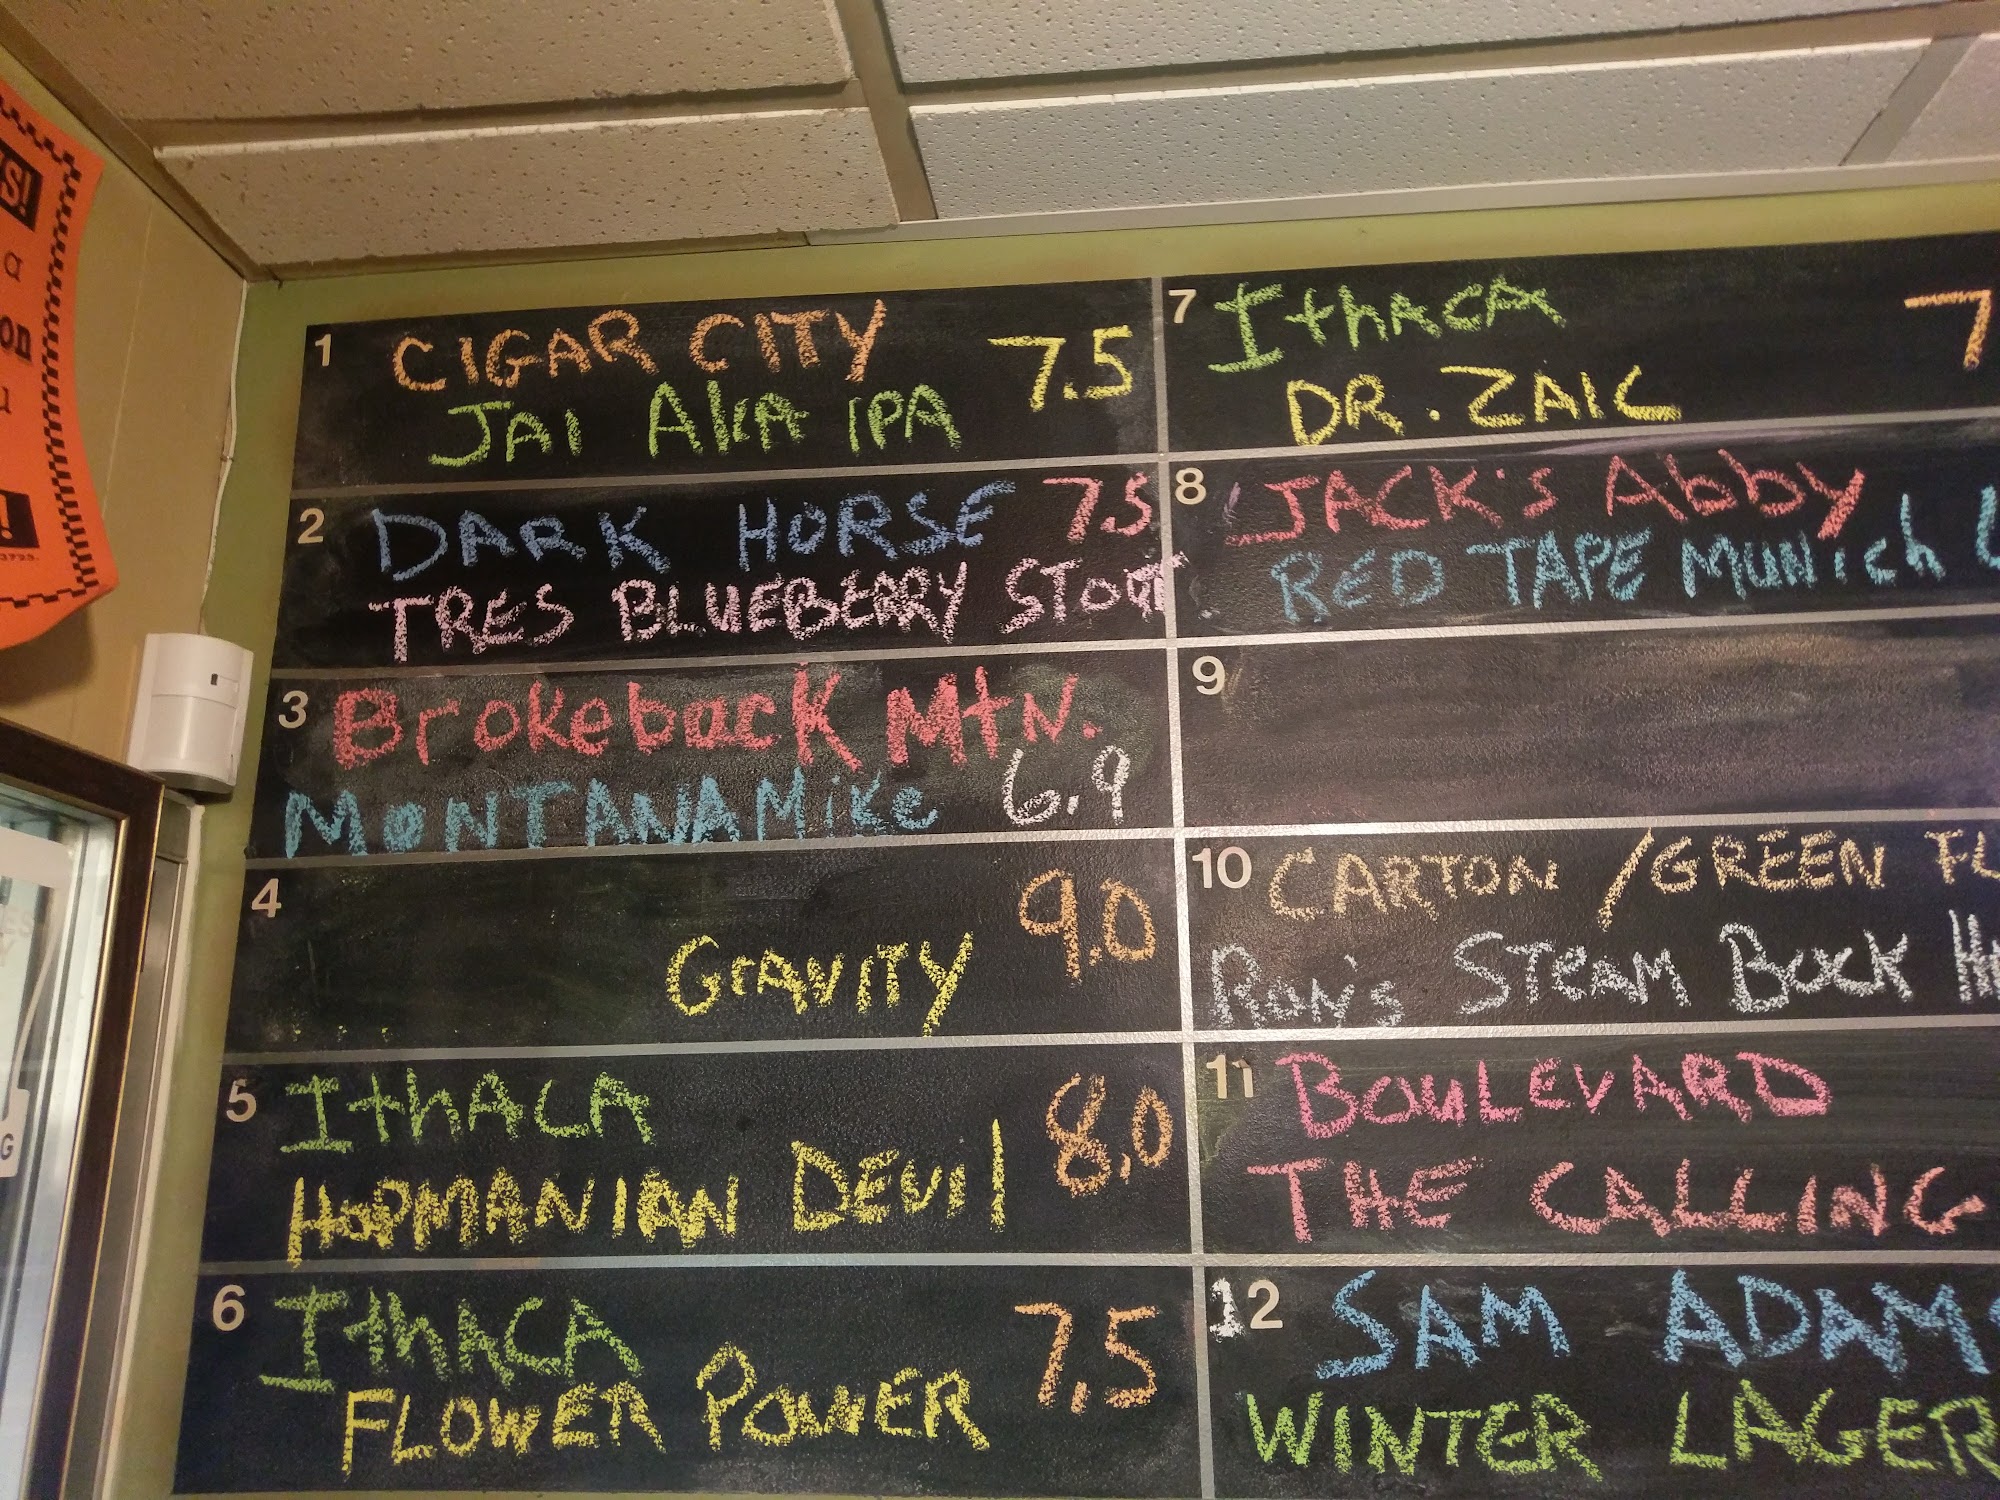 1 CIGAR CITY 7.5
JAI ALIA IPA
2 DARK HORSE 7.5
TRES BLUEBERRY STOUT
3 BrokebacK Mtn.
MONTANA MiKe 6.9
4 9.0
GRAVITY
5 IthACA 8.0
HOPMANIAN DEViL
6 IthACA 7.5
FLOWER POWER
7 IthACA 7
DR. ZAIC
8 JACK'S Abby
RED TAPE MUNich L
9
10 CARTON / GREEN FL
RON'S STEAM BOCK
11 BOULEVARD
THE CALLING
12 SAM ADAMS
WINTER LAGER
S!
a
on
u
!
3725.
G